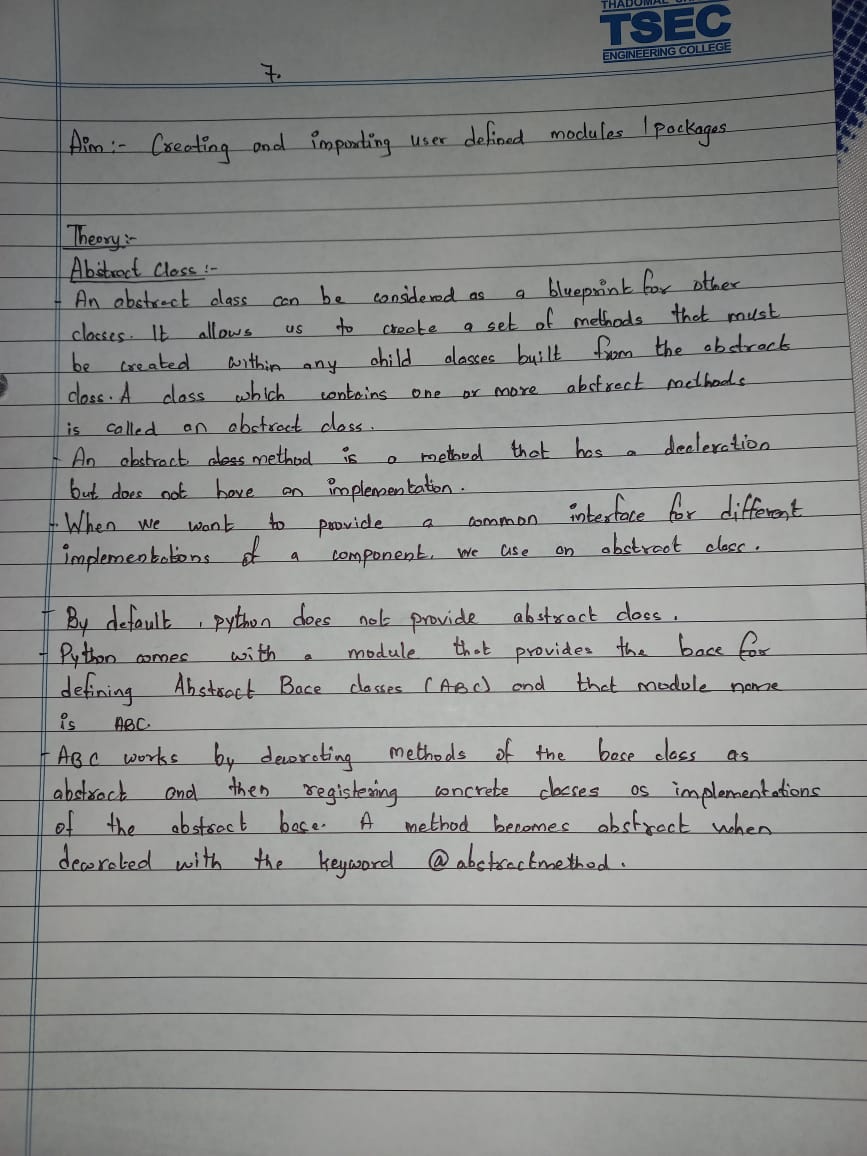 THADOMAL
TSEC
ENGINEERING COLLEGE
7.
Aim :- Creating and importing user defined modules / packages
Theory :-
Abstract Class :-
- An abstract class can be considered as a blueprint for other
classes. It allows us to create a set of methods that must
be created within any child classes built from the abstract
class. A class which contains one or more abstract methods
is called an abstract class.
- An abstract class method is a method that has a decleration
but does not have an implementation.
- When we want to provide a common interface for different
implementations of a component, we use an abstract class.
- By default, python does not provide abstract class.
- Python comes with a module that provides the base for
defining Abstract Base classes (ABC) and that module name
is ABC.
- ABC works by decorating methods of the base class as
abstract and then registering concrete classes as implementations
of the abstract base. A method becomes abstract when
decorated with the keyword @abstractmethod.